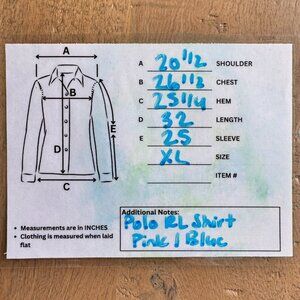 A 20 1/2 SHOULDER
B 26 1/2 CHEST
C 25 1/4 HEM
D 32 LENGTH
E 25 SLEEVE
XL SIZE
ITEM #
A
B
E
D
C
• Measurements are in INCHES
• Clothing is measured when laid
flat
Additional Notes:
Polo RL Shirt
Pink / Blue